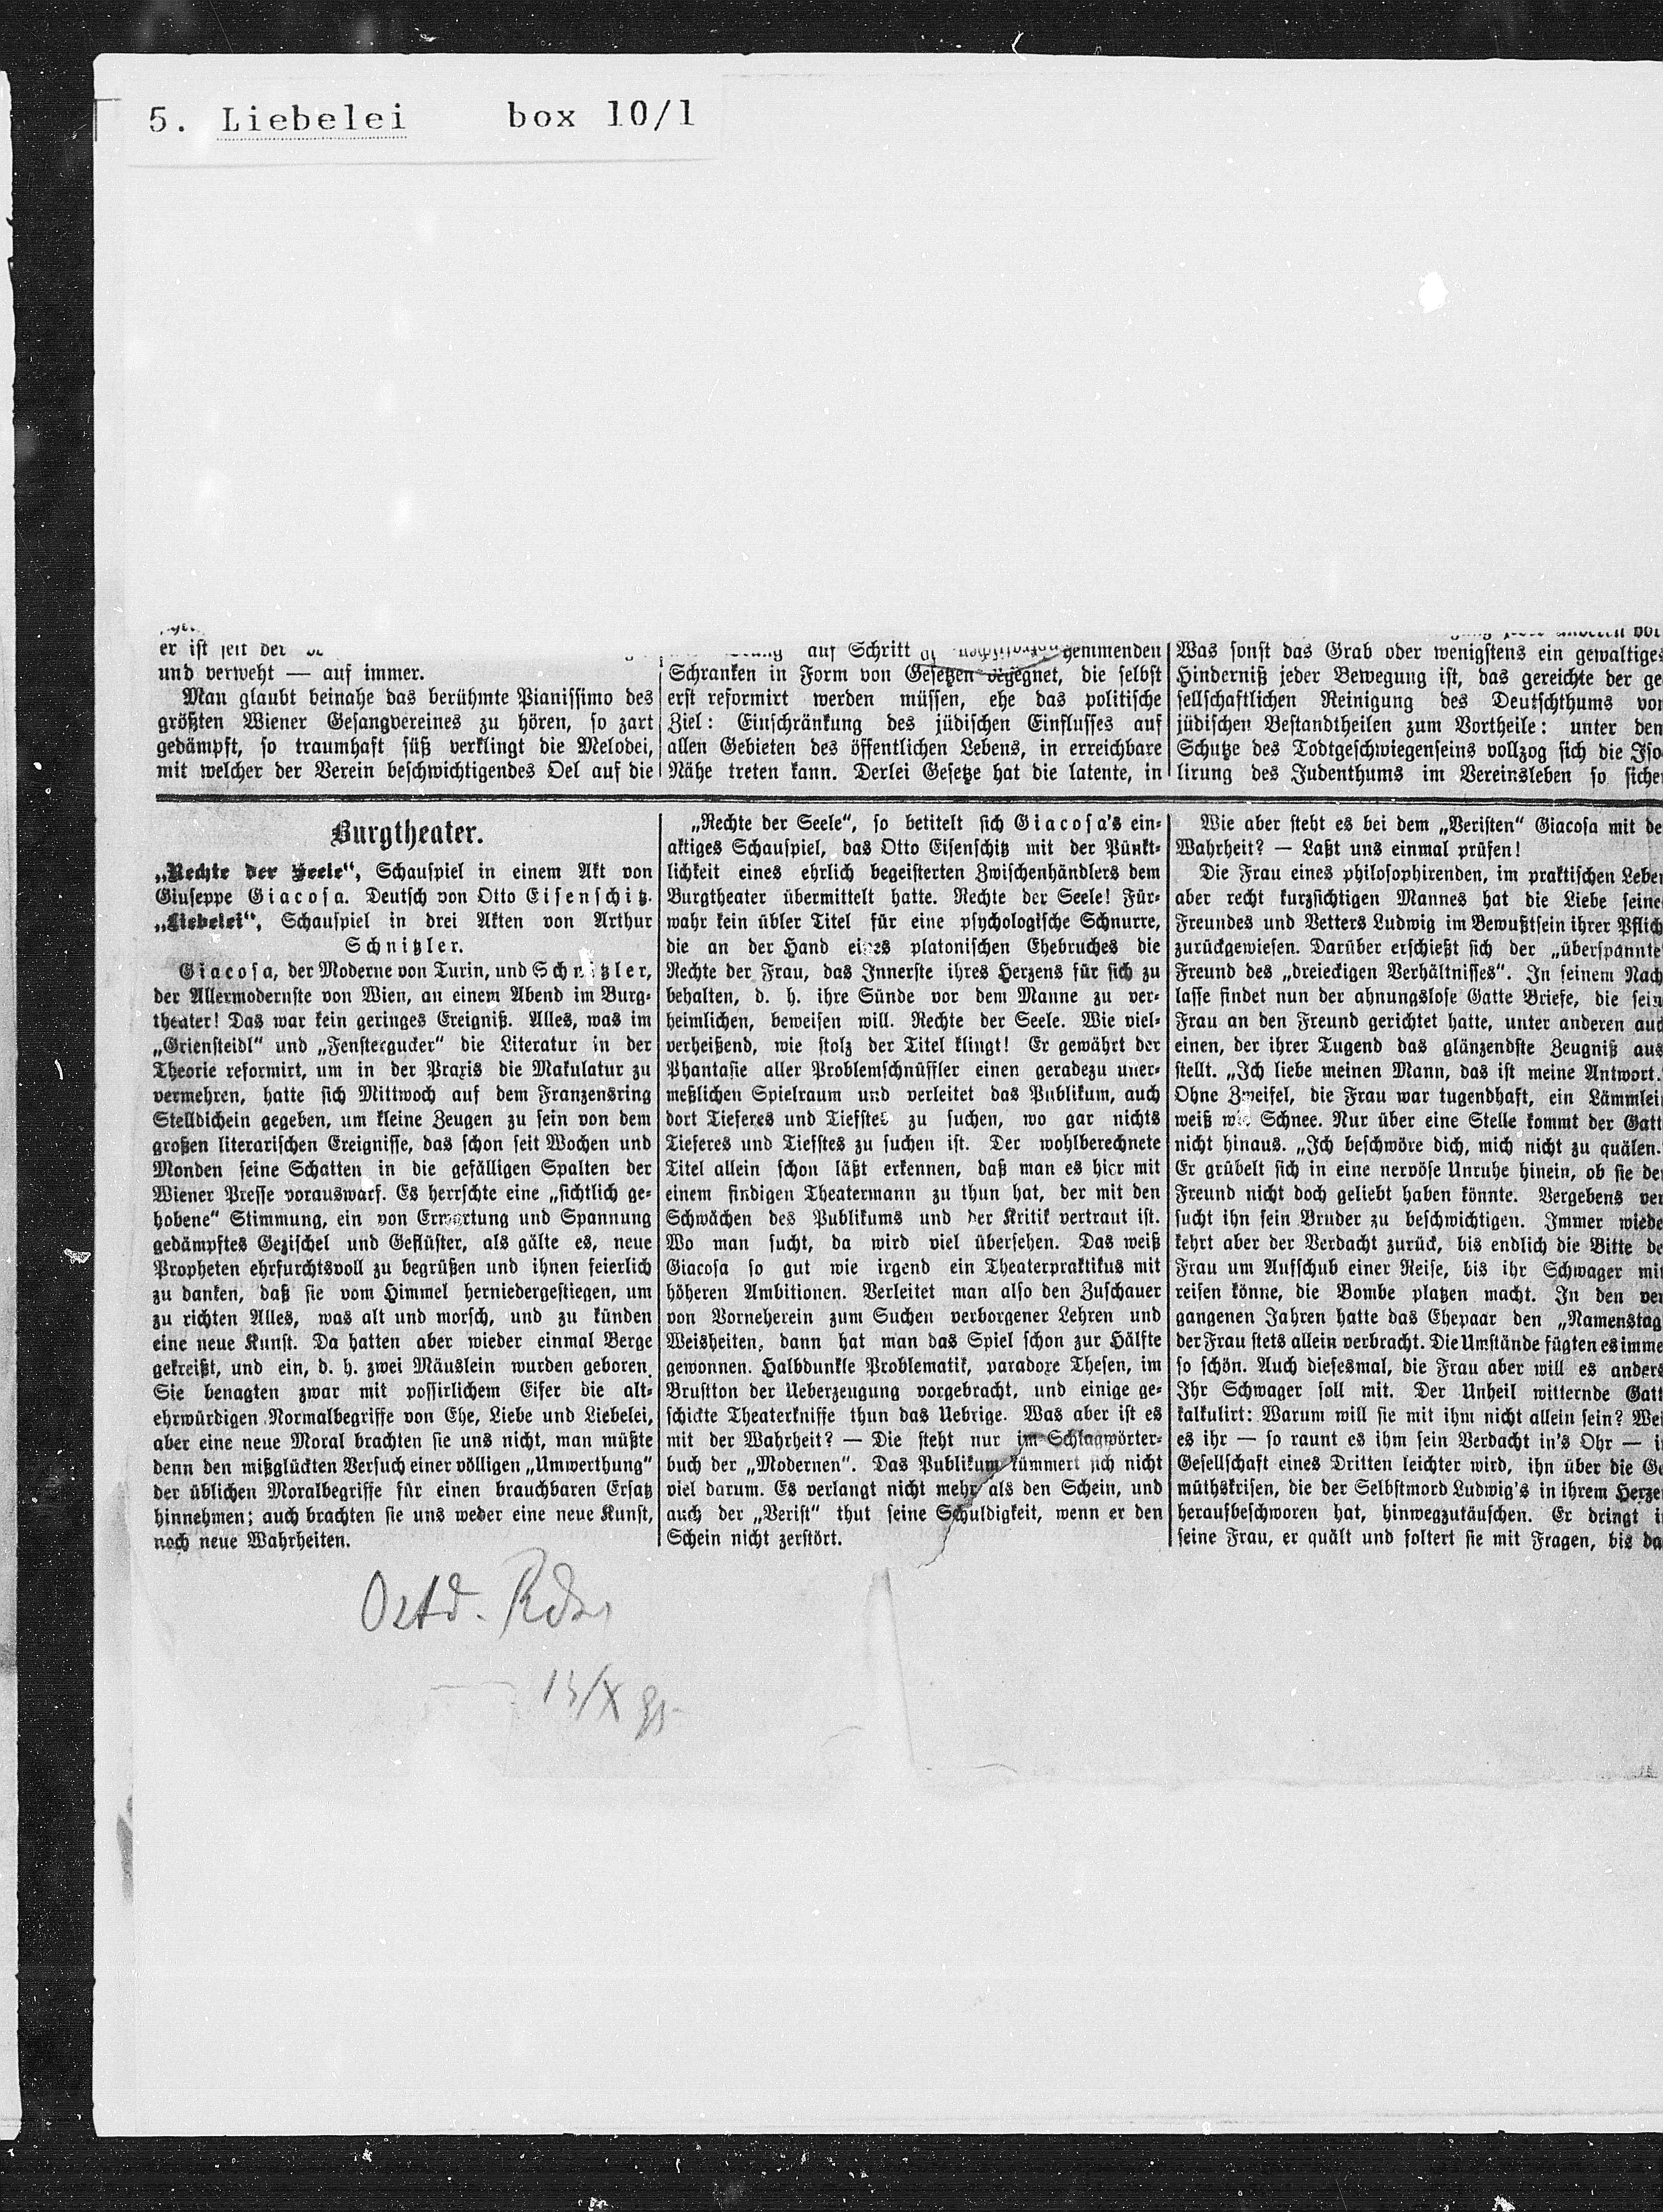 5. Liebelei box 10/1
er ist seit der
und verweht — auf immer.
Man glaubt beinahe das berühmte Pianissimo des
größten Wiener Gesangvereines zu hören, so zart
gedämpft, so traumhaft süß verklingt die Melodei,
mit welcher der Verein beschwichtigendes Oel auf die
auf Schritt hemmenden
Schranken in Form von Gesetzen begegnet, die selbst
erst reformirt werden müssen, ehe das politische
Ziel: Einschränkung des jüdischen Einflusses auf
allen Gebieten des öffentlichen Lebens, in erreichbare
Nähe treten kann. Derlei Gesetze hat die latente, in
Was sonst das Grab oder wenigstens ein gewaltiges
Hinderniß jeder Bewegung ist, das gereichte der ge
sellschaftlichen Reinigung des Deutschthums von
jüdischen Bestandtheilen zum Vortheile: unter dem
Schutze des Todtgeschwiegenseins vollzog sich die Iso
lirung des Judenthums im Vereinsleben so sicher
Burgtheater.
„Rechte der Seele“, Schauspiel in einem Akt von
Giuseppe Giacosa. Deutsch von Otto Eisenschitz.
„Liebelei“, Schauspiel in drei Akten von Arthur
Schnitzler.
Giacosa, der Moderne von Turin, und Schnitzler,
der Allermodernste von Wien, an einem Abend im Burg-
theater! Das war kein geringes Ereigniß. Alles, was im
„Griensteidl“ und „Fenstergucker“ die Literatur in der
Theorie reformirt, um in der Praxis die Makulatur zu
vermehren, hatte sich Mittwoch auf dem Franzensring
Stelldichein gegeben, um kleine Zeugen zu sein von dem
großen literarischen Ereignisse, das schon seit Wochen und
Monden seine Schatten in die gefälligen Spalten der
Wiener Presse vorauswarf. Es herrschte eine „sichtlich ge-
hobene“ Stimmung, ein von Erwartung und Spannung
gedämpftes Gezischel und Geflüster, als gälte es, neue
Propheten ehrfurchtsvoll zu begrüßen und ihnen feierlich
zu danken, daß sie vom Himmel herniedergestiegen, um
zu richten Alles, was alt und morsch, und zu künden
eine neue Kunst. Da hatten aber wieder einmal Berge
gekreißt, und ein, d. h. zwei Mäuslein wurden geboren.
Sie benagten zwar mit possirlichem Eifer die alt-
ehrwürdigen Normalbegriffe von Ehe, Liebe und Liebelei,
aber eine neue Moral brachten sie uns nicht, man müßte
denn den mißglückten Versuch einer völligen „Umwerthung“
der üblichen Moralbegriffe für einen brauchbaren Ersatz
hinnehmen; auch brachten sie uns weder eine neue Kunst,
noch neue Wahrheiten.
„Rechte der Seele“, so betitelt sich Giacosa's ein-
aktiges Schauspiel, das Otto Eisenschitz mit der Pünkt-
lichkeit eines ehrlich begeisterten Zwischenhändlers dem
Burgtheater übermittelt hatte. Rechte der Seele! Für-
wahr kein übler Titel für eine psychologische Schnurre,
die an der Hand eines platonischen Ehebruches die
Rechte der Frau, das Innerste ihres Herzens für sich zu
behalten, d. h. ihre Sünde vor dem Manne zu ver-
heimlichen, beweisen will. Rechte der Seele. Wie viel-
verheißend, wie stolz der Titel klingt! Er gewährt der
Phantasie aller Problemschnüffler einen geradezu uner-
meßlichen Spielraum und verleitet das Publikum, auch
dort Tieferes und Tiefstes zu suchen, wo gar nichts
Tieferes und Tiefstes zu suchen ist. Der wohlberechnete
Titel allein schon läßt erkennen, daß man es hier mit
einem findigen Theatermann zu thun hat, der mit den
Schwächen des Publikums und der Kritik vertraut ist.
Wo man sucht, da wird viel übersehen. Das weiß
Giacosa so gut wie irgend ein Theaterpraktikus mit
höheren Ambitionen. Verleitet man also den Zuschauer
von Vorneherein zum Suchen verborgener Lehren und
Weisheiten, dann hat man das Spiel schon zur Hälfte
gewonnen. Halbdunkle Problematik, paradoxe Thesen, im
Brustton der Ueberzeugung vorgebracht, und einige ge-
schickte Theaterkniffe thun das Uebrige. Was aber ist es
mit der Wahrheit? — Die steht nur im Schlagwörter-
buch der „Modernen“. Das Publikum kümmert sich nicht
viel darum. Es verlangt nicht mehr als den Schein, und
auch der „Verist“ thut seine Schuldigkeit, wenn er den
Schein nicht zerstört.
Wie aber steht es bei dem „Veristen“ Giacosa mit de
Wahrheit? — Laßt uns einmal prüfen!
Die Frau eines philosophirenden, im praktischen Leben
aber recht kurzsichtigen Mannes hat die Liebe seine
Freundes und Vetters Ludwig im Bewußtsein ihrer Pflich
zurückgewiesen. Darüber erschießt sich der „überspannte“
Freund des „dreieckigen Verhältnisses“. In seinem Nach
lasse findet nun der ahnungslose Gatte Briefe, die sein
Frau an den Freund gerichtet hatte, unter anderen auch
einen, der ihrer Tugend das glänzendste Zeugniß aus
stellt. „Ich liebe meinen Mann, das ist meine Antwort.“
Ohne Zweifel, die Frau war tugendhaft, ein Lämmlei
weiß wie Schnee. Nur über eine Stelle kommt der Gatt
nicht hinaus. „Ich beschwöre dich, mich nicht zu quälen.“
Er grübelt sich in eine nervöse Unruhe hinein, ob sie de
Freund nicht doch geliebt haben könnte. Vergebens ver
sucht ihn sein Bruder zu beschwichtigen. Immer wiede
kehrt aber der Verdacht zurück, bis endlich die Bitte de
Frau um Aufschub einer Reise, bis ihr Schwager mit
reisen könne, die Bombe platzen macht. In den ver
gangenen Jahren hatte das Ehepaar den „Namenstag
der Frau stets allein verbracht. Die Umstände fügten es imme
so schön. Auch diesesmal, die Frau aber will es anders
Ihr Schwager soll mit. Der Unheil witternde Gatt
kalkulirt: Warum will sie mit ihm nicht allein sein? Wei
es ihr — so raunt es ihm sein Verdacht in's Ohr — i
Gesellschaft eines Dritten leichter wird, ihn über die Ge
müthskrisen, die der Selbstmord Ludwig's in ihrem Herze
heraufbeschworen hat, hinwegzutäuschen. Er dringt i
seine Frau, er quält und foltert sie mit Fragen, bis da
Ostd. Rdsch
13/X 95